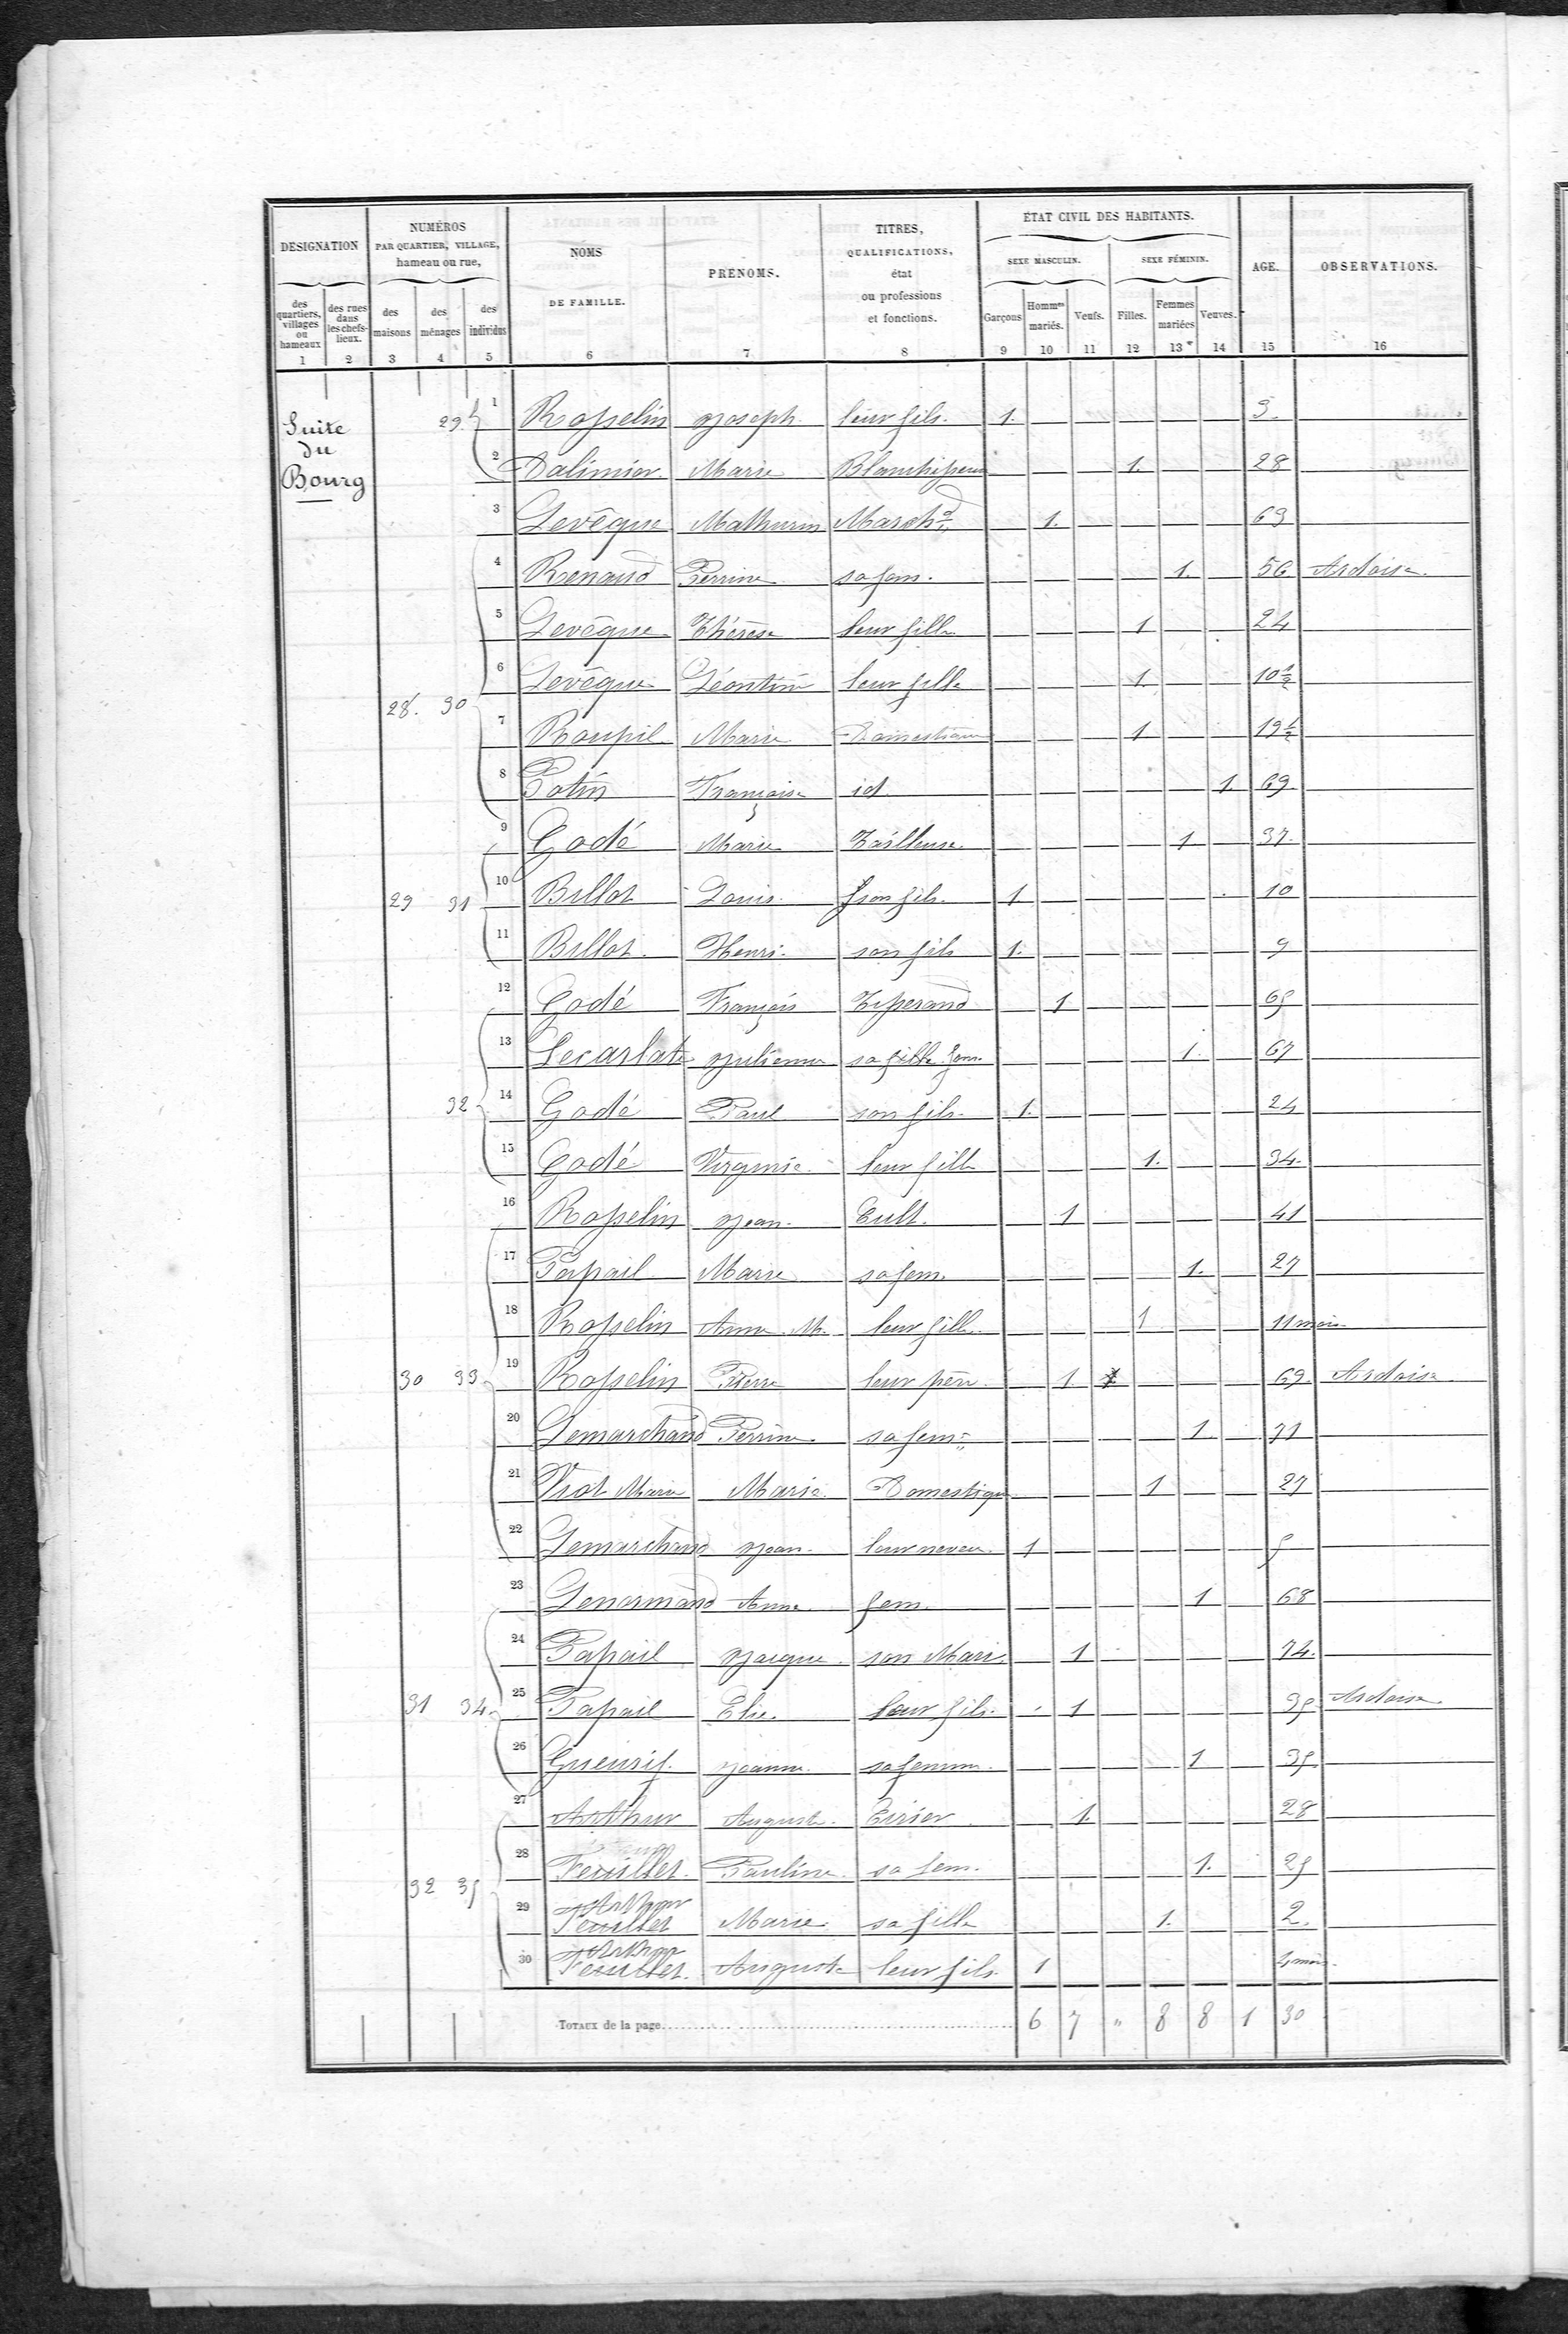 DESIGNATION
NUMÉROS PAR QUARTIER, VILLAGE, hameau ou rue,
NOMS DE FAMILLE.
PRÉNOMS.
TITRES, QUALIFICATIONS, état ou professions et fonctions.
ÉTAT CIVIL DES HABITANTS.
SEXE MASCULIN.
SEXE FÉMININ.
AGE.
OBSERVATIONS.
des quartiers, villages ou hameaux
des rues dans les chefs-lieux.
des maisons
des ménages
des individus
Garçons
Hommes mariés.
Veufs.
Filles.
Femmes mariées
Veuves.
1 2 3 4 5 6 7 8 9 10 11 12 13 14 15 16
Suite du Bourg
29 1 Rosselin Joseph leur fils. 1. 3.
2 Dalimier Marie 1. 28
3 Levêque Mathurin March^d 1. 63
4 Renaud Perrine sa fem. 1. 56 Ardoise.
5 Levêque Thérèse leur fille 1 24
6 Levêque Léontine leur fille 1. 10 1/2
28. 30
7 Roupil Marie Domestique 1 19 1/2
8 Potin Françoise id. 1 69
9 Godé Marie Tailleuse. 1 37.
29 31 10 Billot Louis son fils. 1 10
11 Billot. Henri. son fils 1. 9
12 Godé François Tisserand 1 65
13 Lecarlate Julienne sa fille fem. 1. 67
32 14 Godé Paul son fils. 1. 24
15 Godé Virginie. leur fille 1. 34.
16 Rosselin Jean. Cult. 1 41
17 Papail Marie sa fem. 1. 27
18 Rosselin Anne M. leur fille 1 11 mois
30 33 19 Rosselin Pierre leur père. 1 69. Ardoise
20 Lemarchand Perrine. sa fem. 1 71
21 Viot Marie Marie Domestique 1 27
22 Lemarchand Jean. leur neveu. 1 5
23 Lenormand Anne fem. 1 68
24 Papail Jacque. son Mari 1 74.
31 34 25 Papail Elie. leur fils. 1 35 Ardoise
26 Guenrif. Jeanne. sa femme. 1 35
27 Arthur Auguste. Cirier 1. 28
28 Feuillet. Pauline. sa fem. 1. 25
32 35
29 Arthur Feuillet Marie. sa fille 1. 2.
30 Arthur Feuillet. Auguste leur fils. 1 4 mois
TOTAUX de la page 6 7 " 8 8 1 30